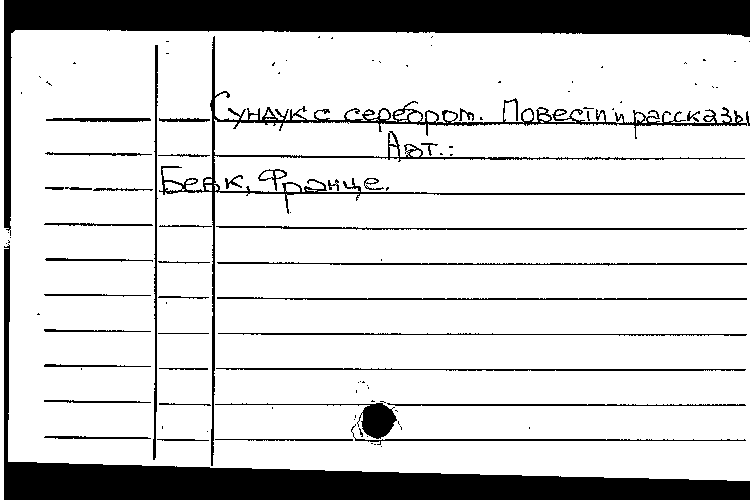 Сундук с серебром. Повести и рассказы
Авт.:
Бевк, Франце.